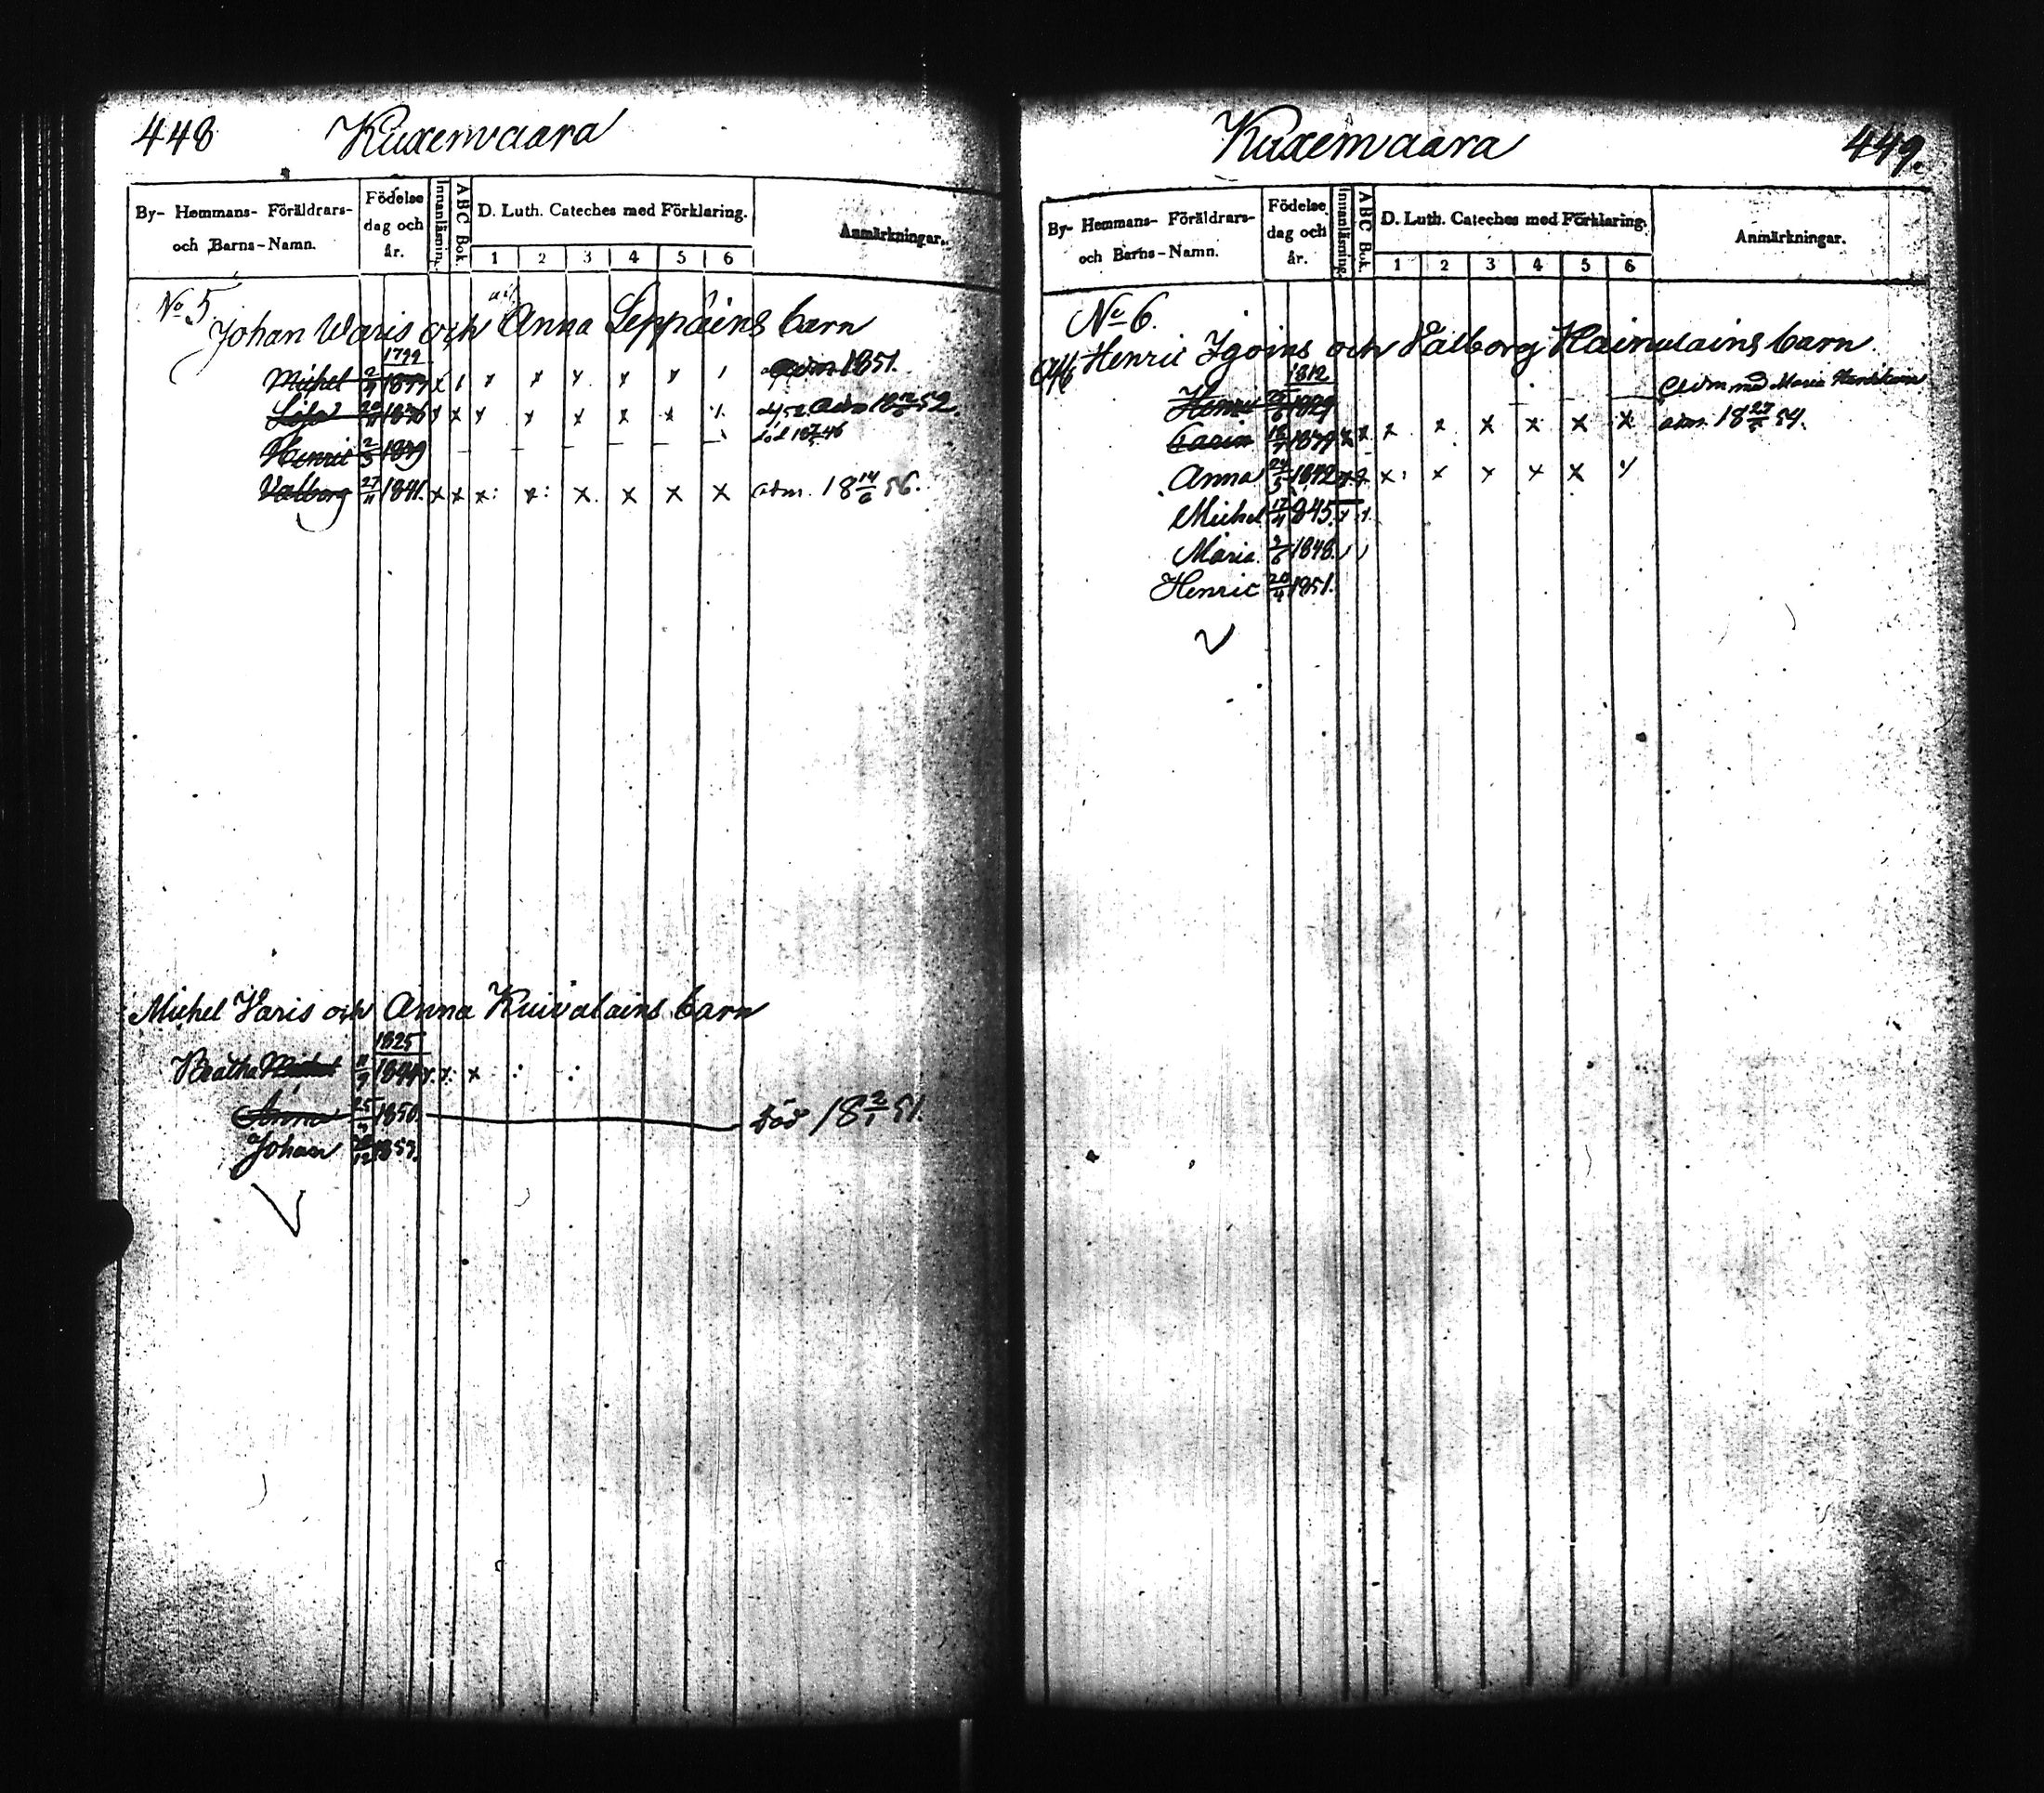 448 Kuxenvaara
By- Hemmans- Föräldrars- och Barns-Namn.
Födelse dag och år.
Innanläsning.
ABC Bok.
D. Luth. Cateches med Förklaring.
1 2 3 4 5 6
Anmärkningar.
No 5.
Johan Waris och Anna Leppäins barn
1799
Michel 1851.
adm 18 52.
Henric 2/3 1839
Valborg 27/11 1841. x x x: x: x. x x x adm. 18 14/6 56.
Michel Varis och Anna Kuivalains barn
1825
Beatha 11/9 184 x
Anna 25 1850. död 18 2/1 51.
Johan /12 1853.
Kuxenvaara 449.
By- Hemmans- Föräldrars- och Barns-Namn.
Födelse dag och år.
Innanläsning.
ABC Bok.
D. Luth. Cateches med Förklaring.
1 2 3 4 5 6
Anmärkningar.
No 6.
Henric Igoins och Valborg Hainulains barn
1812
Henric 1829 med Maria
Carin x x x x x x x x adm. 18 54.
Anna 24/5 1842 x x x x x x
Michel 17/11 1845.
Maria. /6 1848.
Henric 1851.